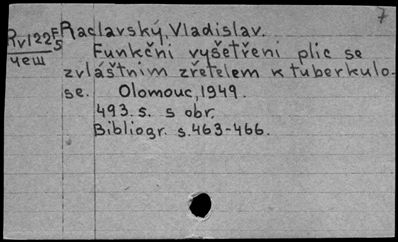 7
Rv1225 Raclavský, Vladislav.
чеш Funkční vyšetření plic se
zvláštním zřetelem k tuberkulo-
se. Olomouc, 1949.
493. s. s obr.
Bibliogr. s. 463-466.